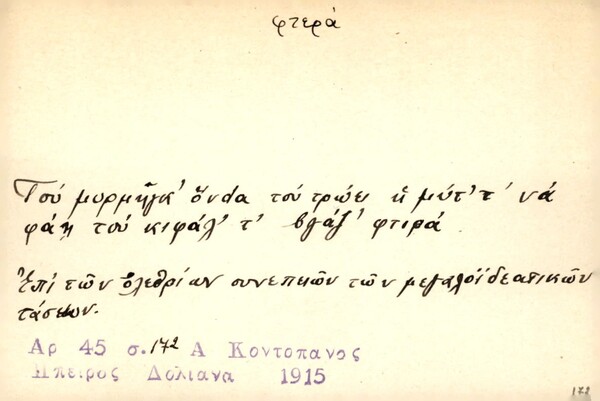 φτερά
Τού μυρμῆγκ' ὅνdα τού τρώει ἡ μύτ' τ' νά
φάῃ τού κιφάλ' τ' βγάζ' φτιρά
Ἐπί τῶν ὀλεθρίων συνεπειῶν τῶν μεγαλοϊδεατικῶν
τάσεων.
Αρ 45 σ. 172 Α Κοντοπανος
Ηπειρος Δολιανα 1915
172